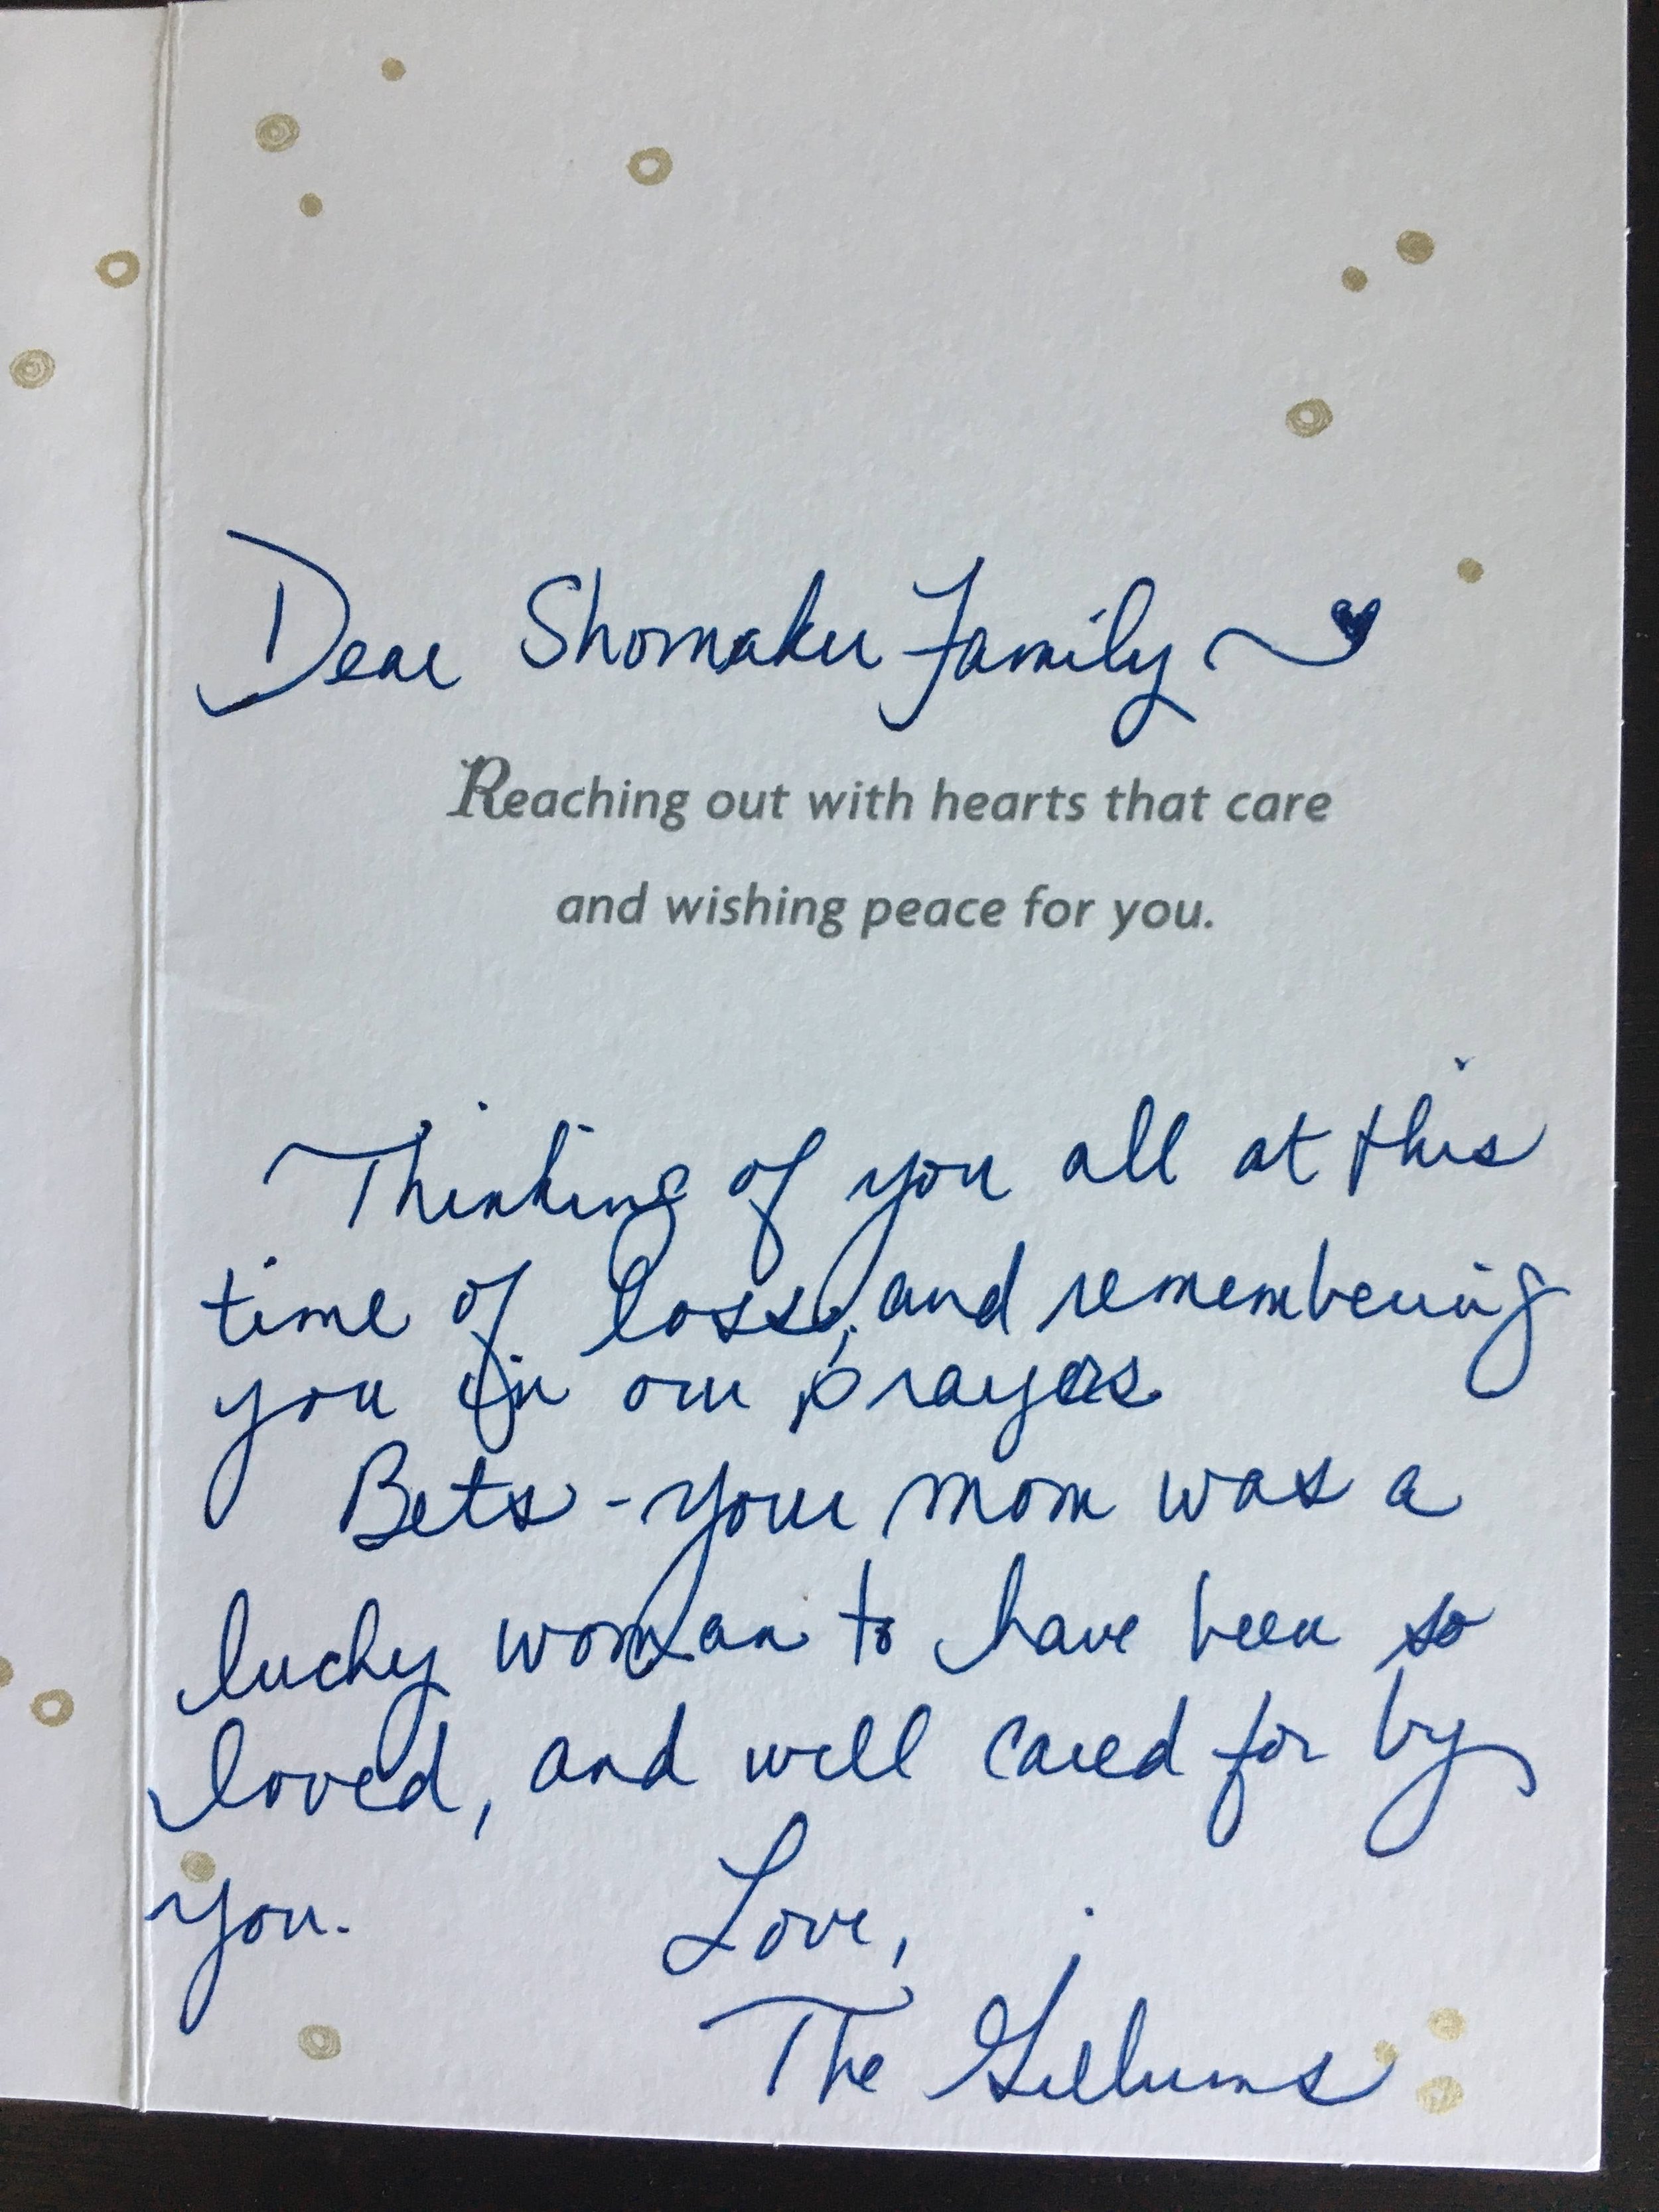 Dear Shomaker Family ~ ♥
Reaching out with hearts that care
and wishing peace for you.
Thinking of you all at this
time of loss, and remembering
you in our prayers
Bets - your mom was a
lucky woman to have been so
loved, and well cared for by
you.
Love,
The Gillums